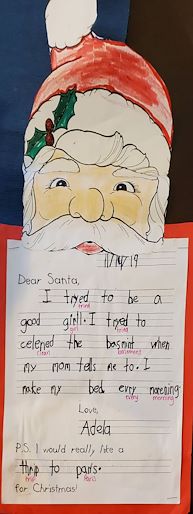 11/19/19
Dear Santa,
I tryed to be a
tried
good girll. I tryed to
girl tried
celened the basmint when
clean basement
my mom telles me to. I
make my bed evry morening
every morning
Love,
Adela
P.S. I would really like a
thrip to paris.
trip Paris
for Christmas!